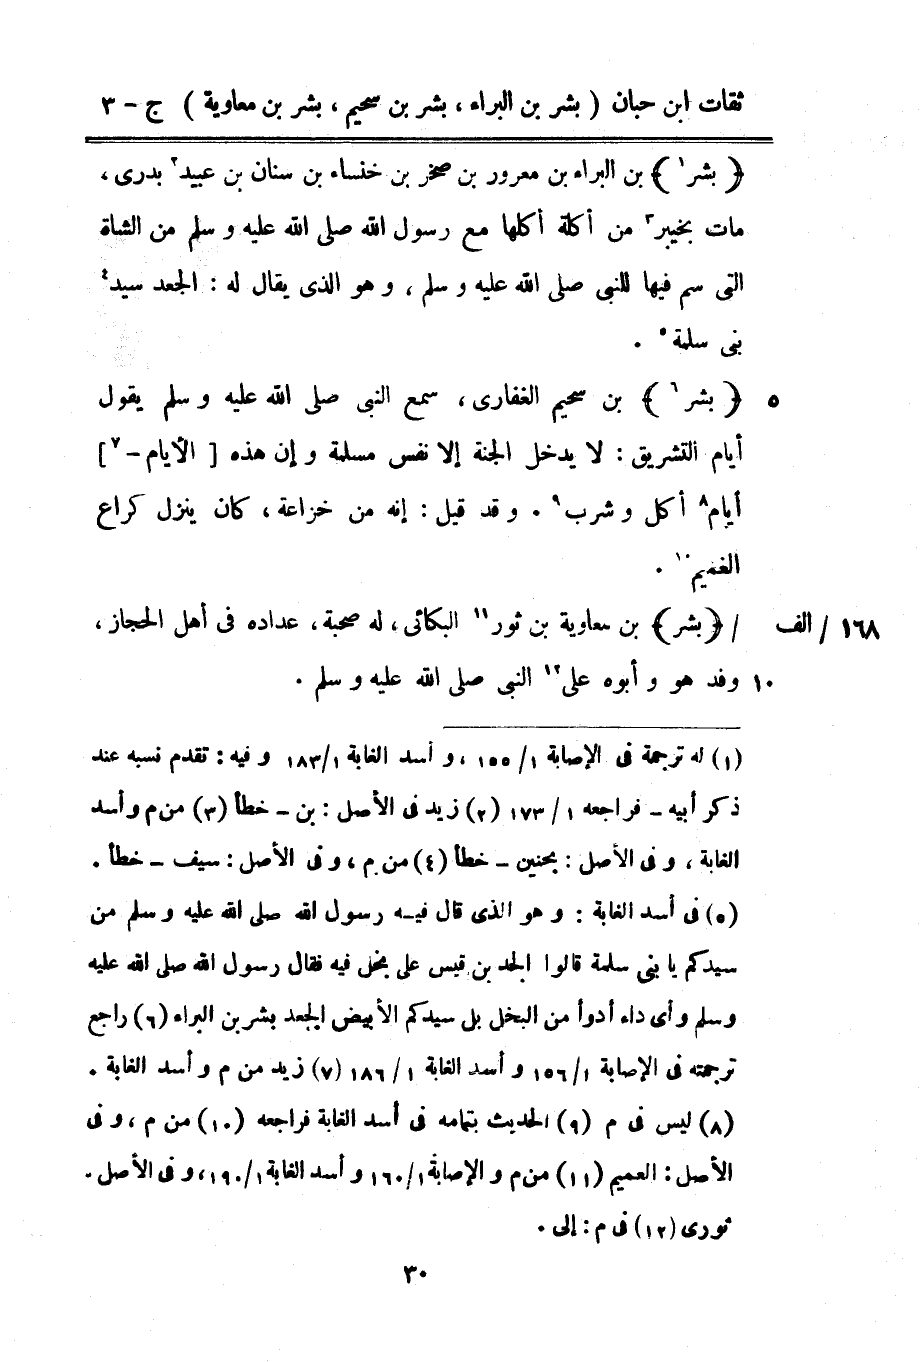 ثقات ابن حبان ( بشر بن البراء ، بشر بن سحيم ، بشر بن معاوية ) ج - ٣
﴿ بشر١ ﴾ بن البراء بن معرور بن صخر بن خنساء بن سنان بن عبيد٢ بدرى ،
مات بخيبر٣ من أكلة أكلها مع رسول الله صلى الله عليه و سلم من الشاة
التى سم فيها للنبى صلى الله عليه و سلم ، و هو الذى يقال له : الجعد سيد٤
بنى سلمة٥ .
٥ ﴿ بشر٦ ﴾ بن سحيم الغفارى ، سمع النبى صلى الله عليه و سلم يقول
أيام التشريق : لا يدخل الجنة إلا نفس مسلمة و إن هذه [ الأيام -٧ ]
أيام٨ أكل و شرب٩ . و قد قيل : إنه من خزاعة ، كان ينزل كراع
الغميم١٠ .
١٦٨ / الف / ﴿ بشر ﴾ بن معاوية بن ثور١١ البكائى ، له صحبة ، عداده فى أهل الحجاز ،
١٠ وفد هو و أبوه على١٢ النبى صلى الله عليه و سلم .
(١) له ترجمة فى الإصابة ١/ ١٥٥ ، و أسد الغابة ١/ ١٨٣ و فيه : تقدم نسبه عند
ذكر أبيه - فراجعه ١ / ١٧٣ (٢) زيد فى الأصل : بن - خطأ (٣) من م و أسد
الغابة ، و فى الأصل : بحنين - خطأ (٤) من م ، و فى الأصل : سيف - خطأ .
(٥) فى أسد الغابة : و هو الذى قال فيه رسول الله صلى الله عليه و سلم من
سيدكم يا بنى سلمة قالوا الجد بن قيس على بخل فيه فقال رسول الله صلى الله عليه
وسلم و أى داء أدوأ من البخل بل سيدكم الأبيض الجعد بشر بن البراء (٦) راجع
ترجمته فى الإصابة ١/ ١٥٦ و أسد الغابة ١ / ١٨٦ (٧) زيد من م و أسد الغابة .
(٨) ليس فى م (٩) الحديث بتمامه فى أسد الغابة فراجعه (١٠) من م ، و فى
الأصل : العميم (١١) من م و الإصابة ١/ ١٦٠ و أسد الغابة ١/ ١٩٠، و فى الأصل .
ثورى (١٢) فى م : إلى .
٣٠